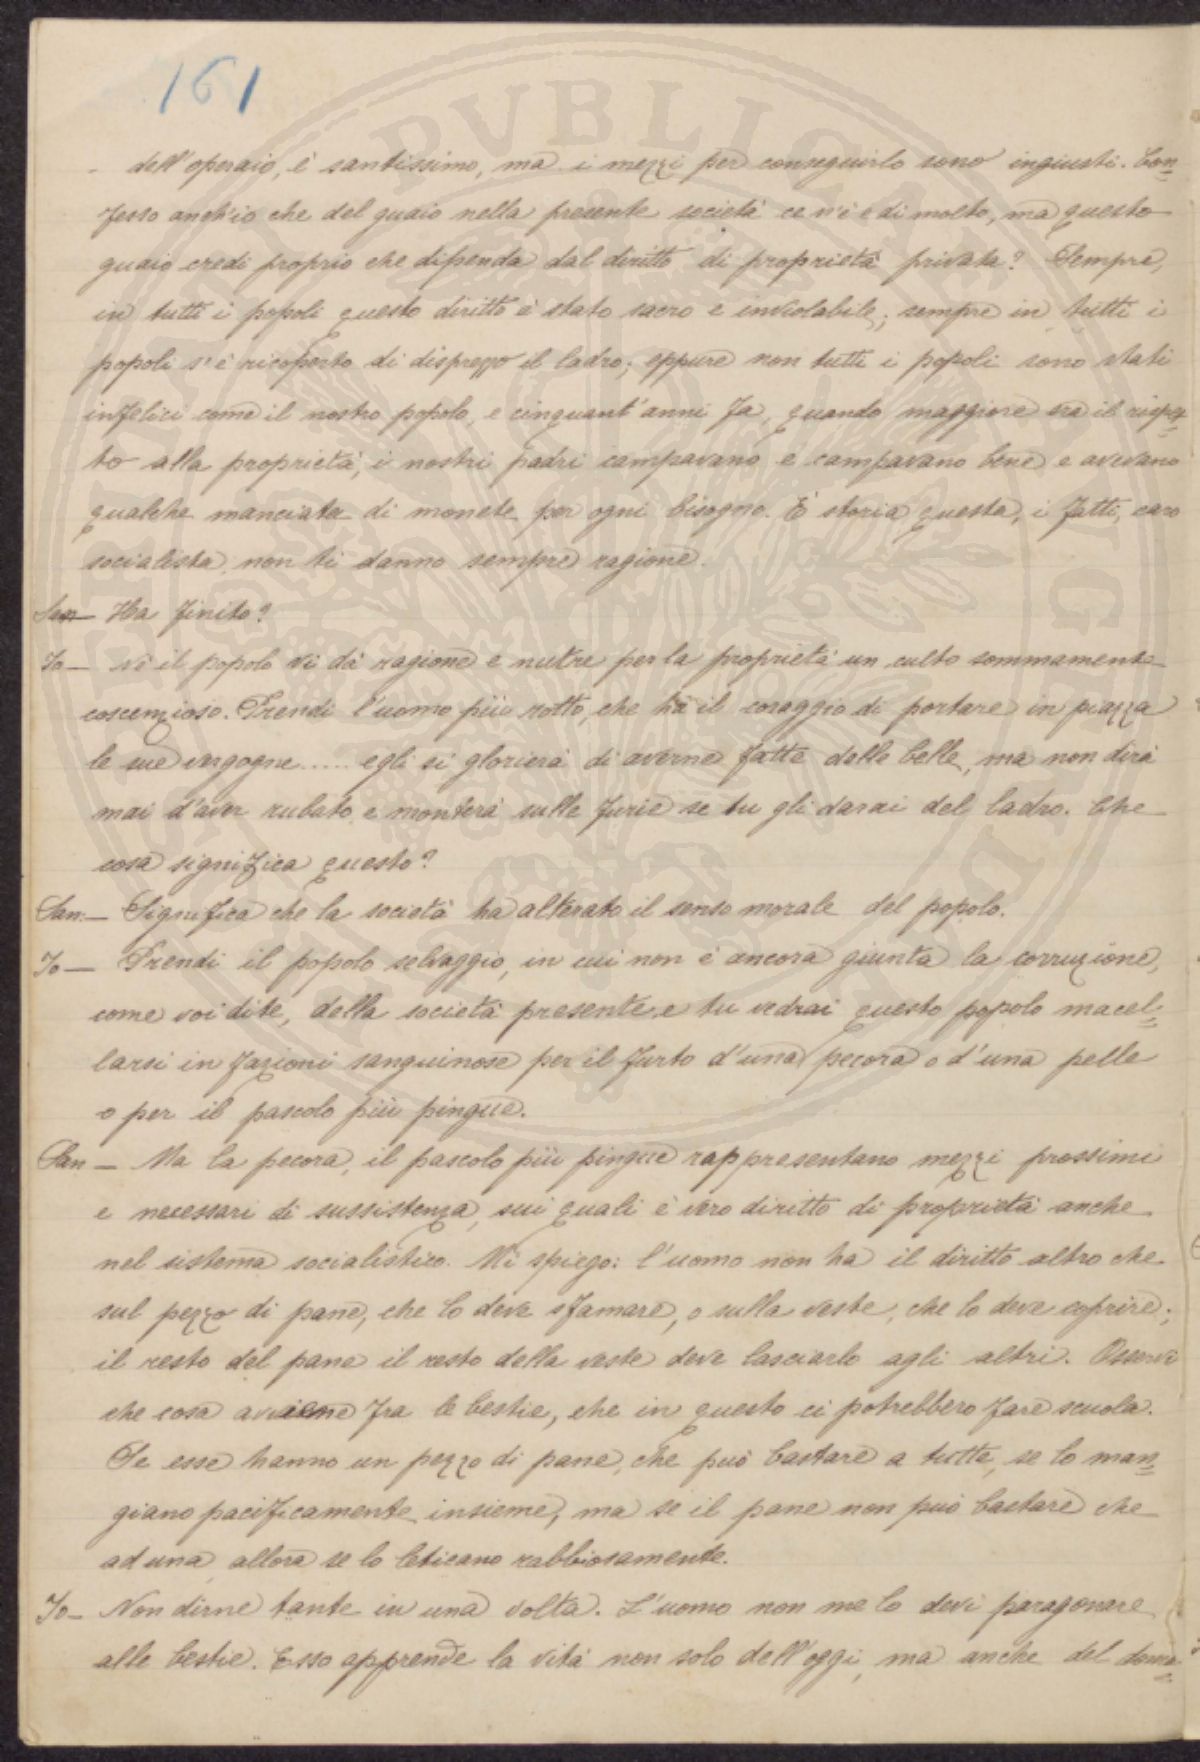 161
dell'operaio, è santissimo, ma i mezzi per conseguirlo sono ingiusti. Con=
fesso anch'io che del guaio nella presente società ce n'è e di molto, ma questo
guaio credi proprio che dipenda dal diritto di proprietà privata? Sempre,
in tutti i popoli questo diritto è stato sacro e inviolabile; sempre in tutti i
popoli s'è ricoperto di disprezzo il ladro; eppure non tutti i popoli sono stati
infelici come il nostro popolo, e cinquant'anni fa, quando maggiore era il rispet=
to alla proprietà, i nostri padri campavano e campavano bene e avevano
qualche manciata di monete per ogni bisogno. È storia questa, i fatti, caro
socialista, non ti danno sempre ragione.
San — Ha finito?
Io — Nè il popolo vi dà ragione e nutre per la proprietà un culto sommamente
coscenzioso. Prendi l'uomo più rotto, che ha il coraggio di portare in piazza
le sue vergogne..... egli si glorierà di averne fatte delle belle, ma non dirà
mai d'aver rubato e monterà sulle furie se tu gli darai del ladro. Che
cosa significa questo?
San: — Significa che la società ha alterato il senso morale del popolo.
Io — Prendi il popolo selvaggio, in cui non è ancora giunta la corruzione,
come voi dite, della società presente e tu vedrai questo popolo macel=
larsi in fazioni sanguinose per il furto d'una pecora o d'una pelle
o per il pascolo più pingue.
San — Ma la pecora, il pascolo più pingue rappresentano mezzi prossimi
e necessari di sussistenza, sui quali è vero diritto di proprietà anche
nel sistema socialistico. Mi spiego: l'uomo non ha il diritto altro che
sul pezzo di pane, che lo deve sfamare, o sulla veste, che lo deve coprire;
il resto del pane il resto della veste deve lasciarlo agli altri. Osservi
che cosa avviene fra le bestie, che in questo ci potrebbero fare scuola.
Se esse hanno un pezzo di pane, che può bastare a tutte, se lo man=
giano pacificamente insieme, ma se il pane non può bastare che
ad una, allora se lo leticano rabbiosamente.
Io — Non dirne tante in una volta. L'uomo non me lo devi paragonare
alle bestie. Esso apprende la vita non solo dell'oggi, ma anche del doma=